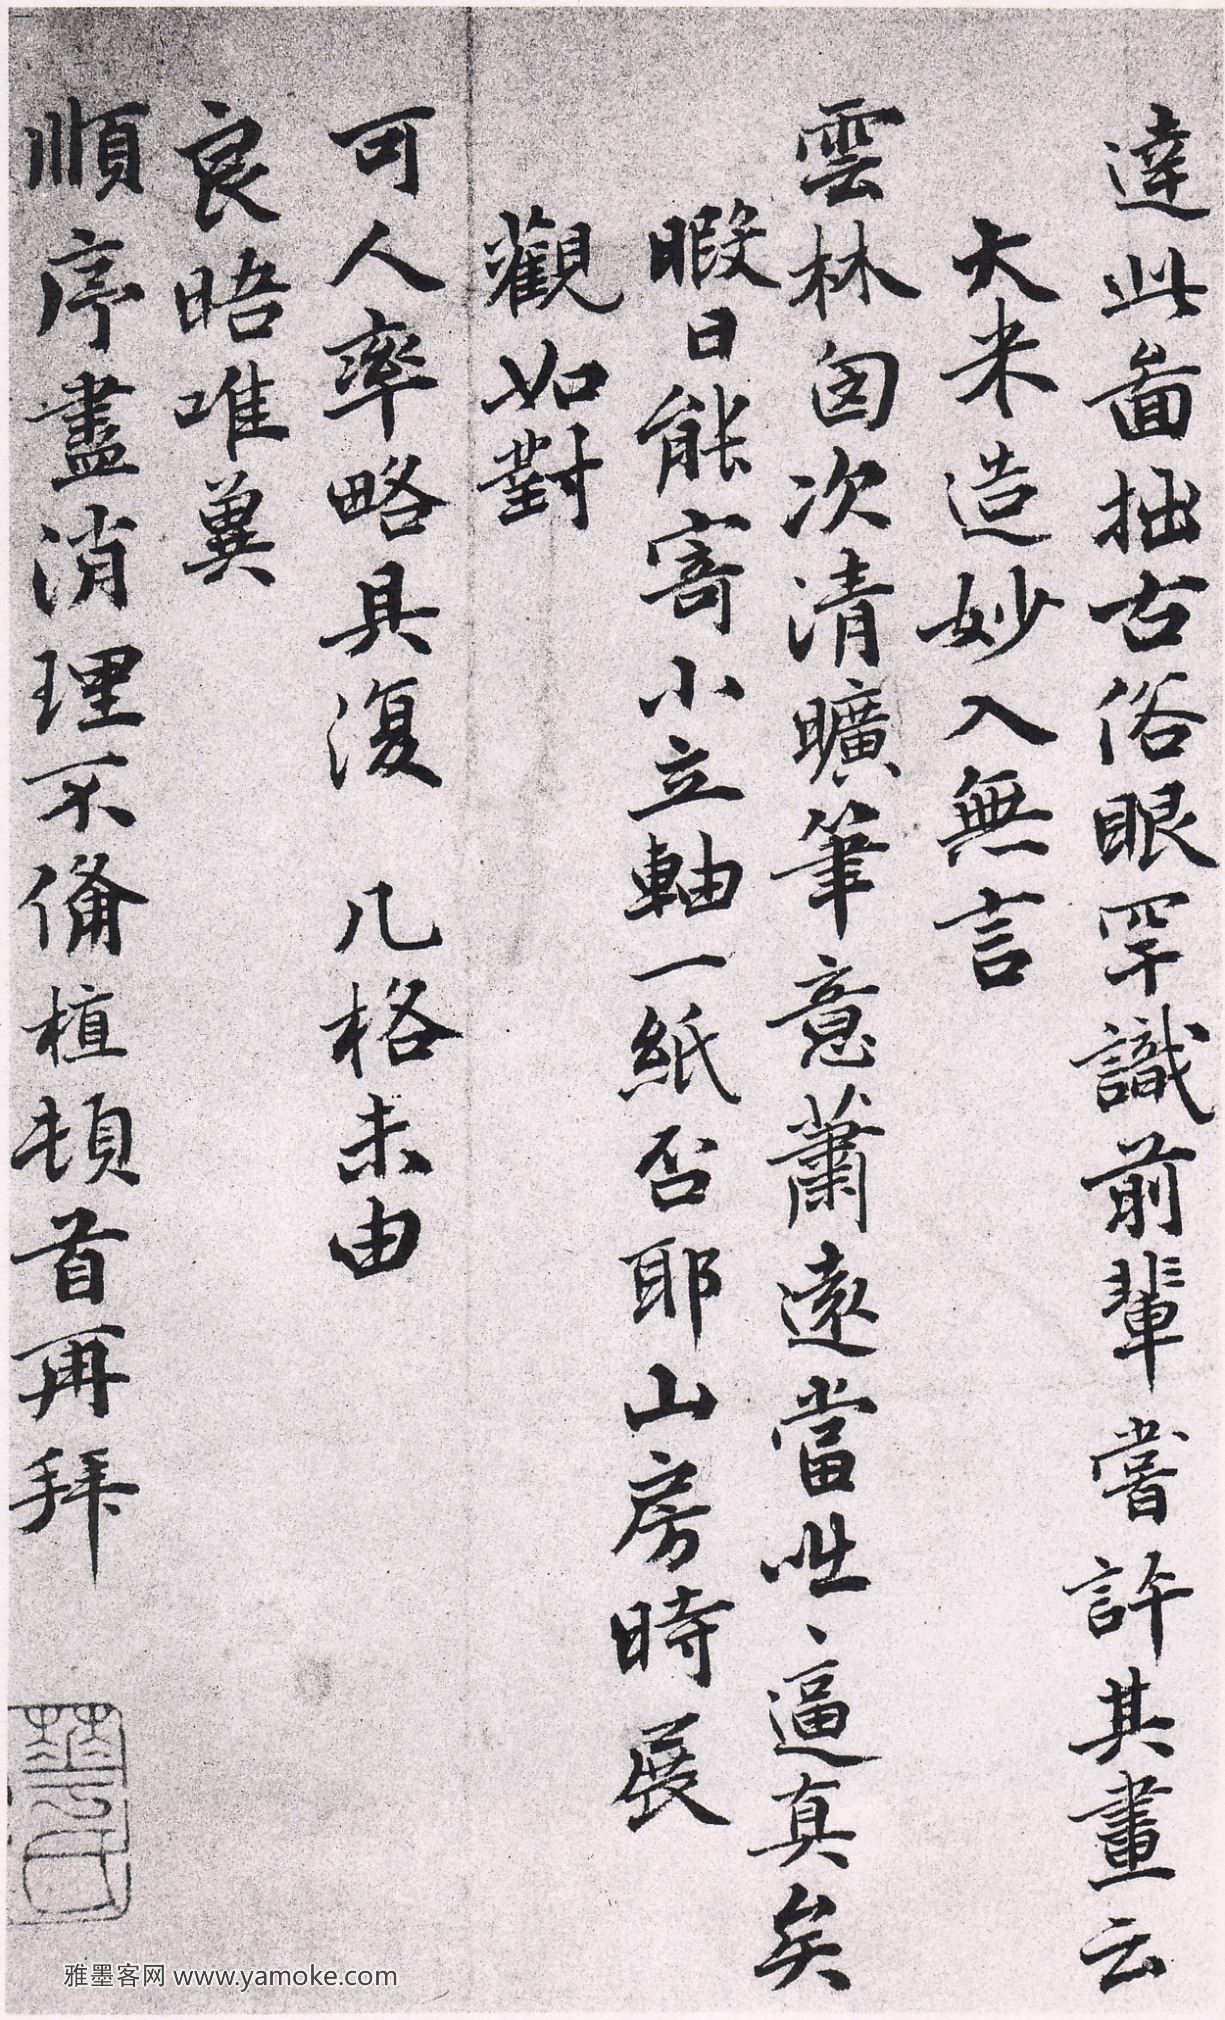 達此啚拙古俗眼罕識前輩嘗許其畫云
大米造妙入無言
雲林匈次清曠筆意蕭遠當咄〻逼真矣
暇日能寄小立軸一紙否耶山房時展
觀如對
可人率略具復 几格未由
良晤唯冀
順序盡消理不備植頓首再拜
華氏
雅墨客网 www.yamoke.com